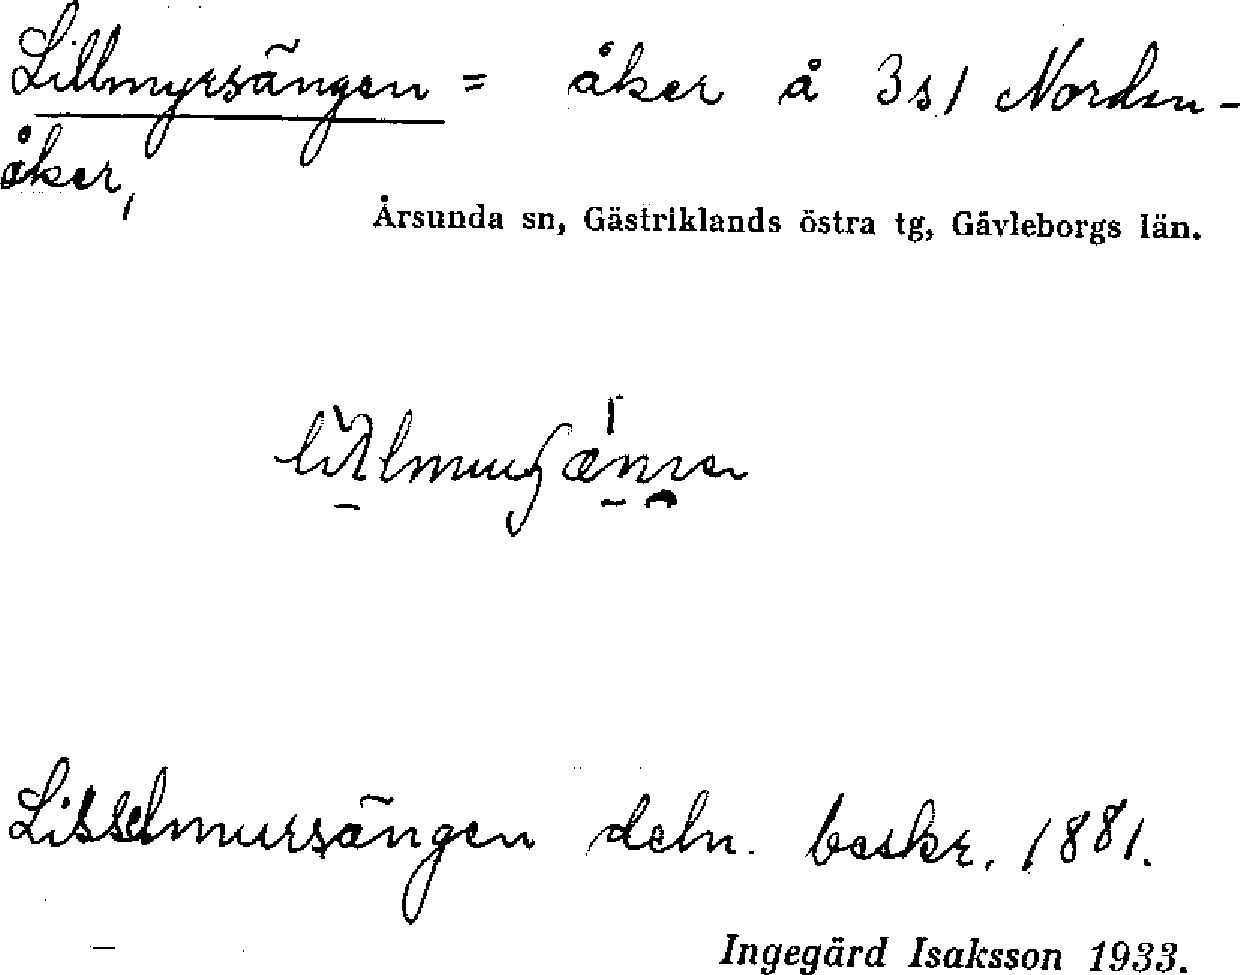 Lillmyrsängen = åker å 3s1 Norden-
åker,
Årsunda sn, Gästriklands östra tg, Gävleborgs län.
Lisselmursängen deln. beskr. 1881.
Ingegärd Isaksson 1933.